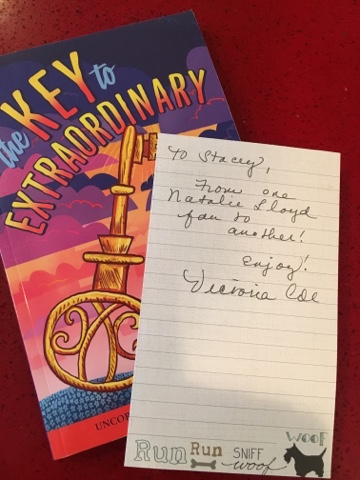 the KEY to
EXTRAORDINARY
UNCOR
To Stacey,
From one
Natalie Lloyd
fan to
another!
Enjoy!
Victoria Coe
Run Run SNIFF woof
WOOF